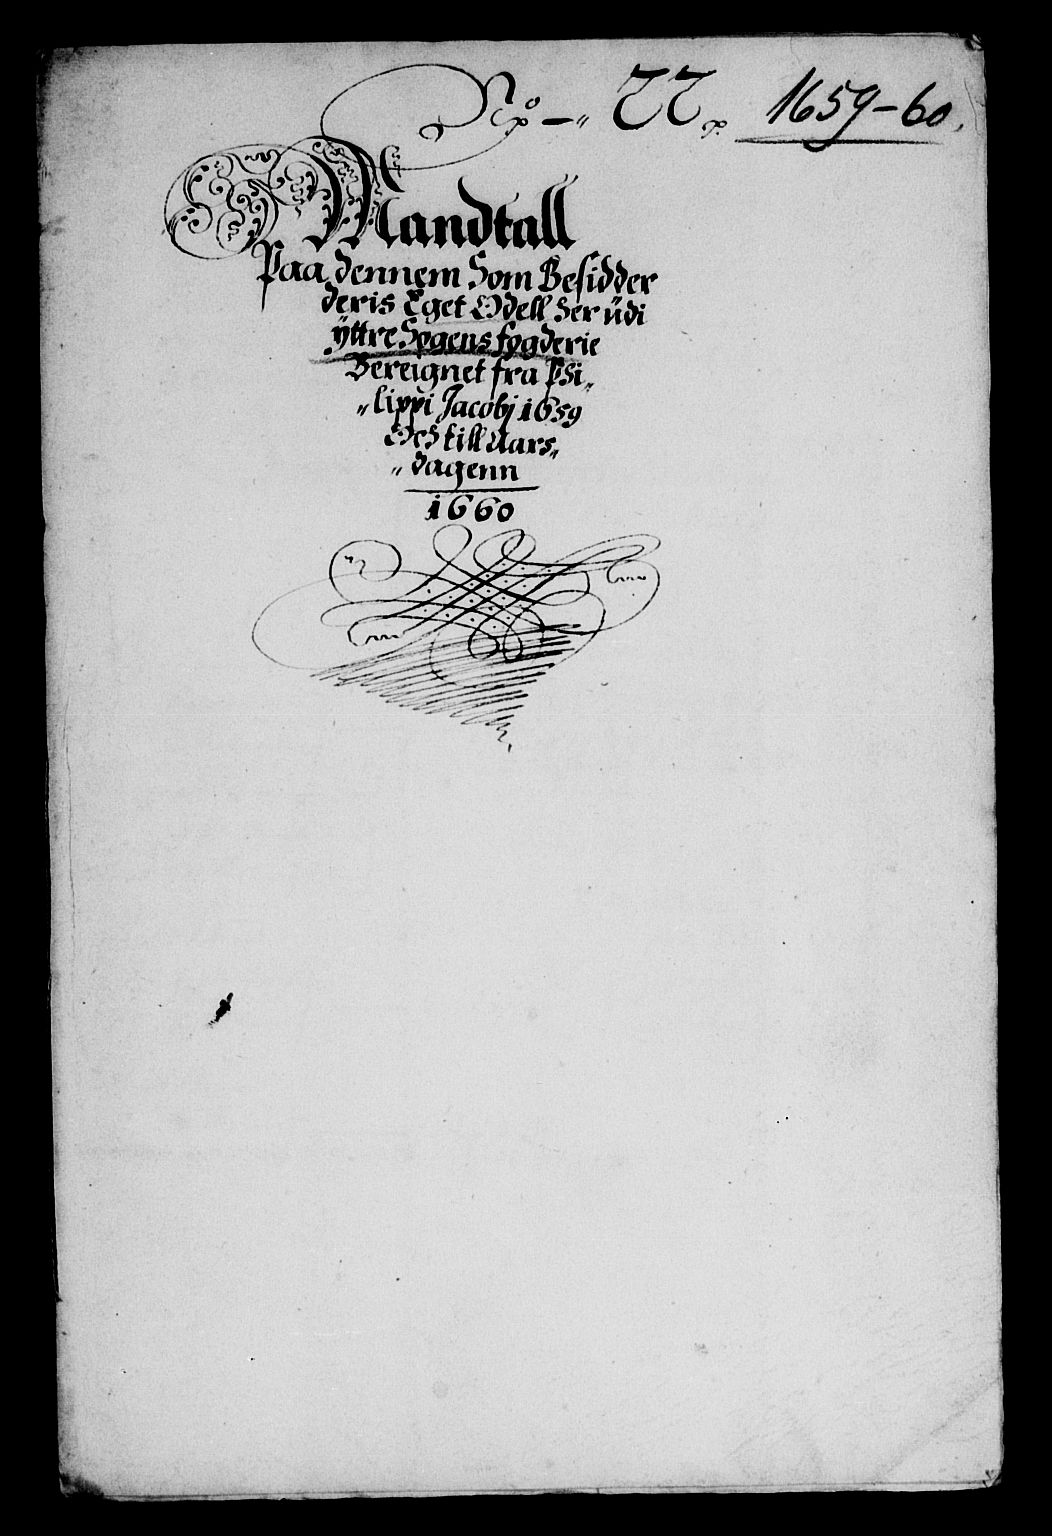 No — 22 1659-60.
Mandtall
Paa dennem Som Besidder
deris Eget Odell her üdi
ÿttre Sogens fogderie
Bereignet fra Phi„
„lippi Jacobj 1659
Och till Aars„
„dagenn
1660